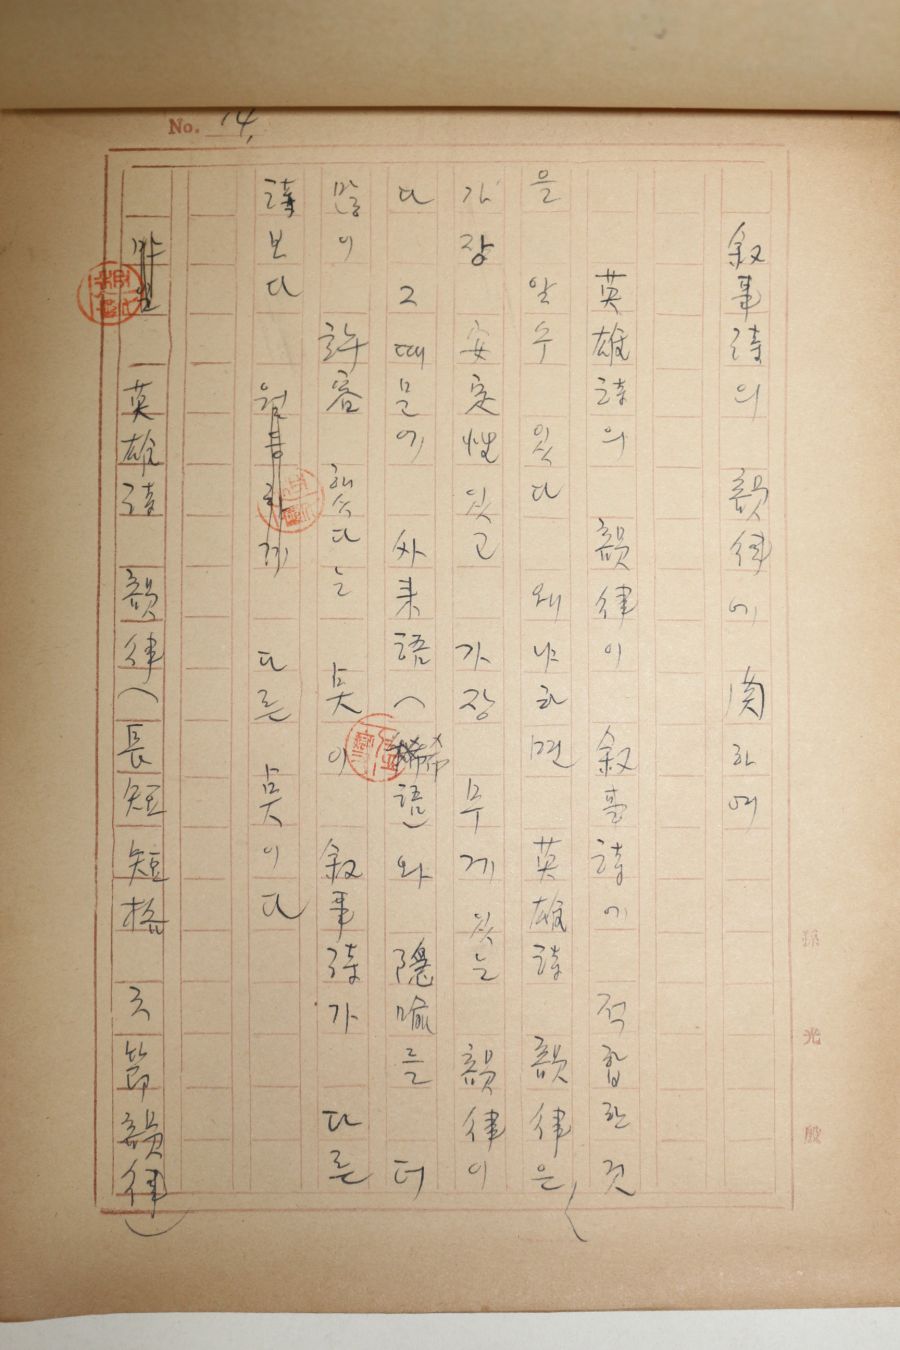 No. 14.
敍事詩의 韻律에 関하여
英雄詩의 韻律이 敍事詩에 적합한 것
을 알수 있다 왜냐하면 英雄詩 韻律은
가장 安定性 있고 가장 무게 있는 韻律이
다 그때문에 外来語(稀語)와 隱喩를 더
많이 許容 해 있다는 点이 敍事詩가 다른
詩보다 월등하게 다른 点이다
英雄詩 韻律(長短短格 六節韻律)